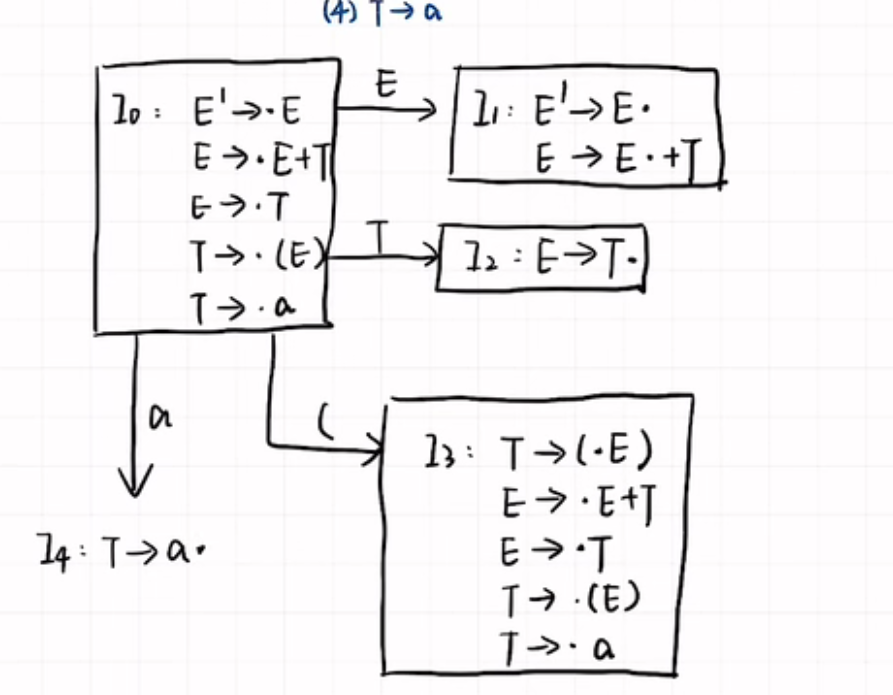 (4) T→a
I₀: E'→·E
E→·E+T
E→·T
T→·(E)
T→·a
E
I₁: E'→E·
E→E·+T
T
I₂: E→T·
a
(
I₃: T→(·E)
E→·E+T
E→·T
T→·(E)
T→·a
I₄: T→a·